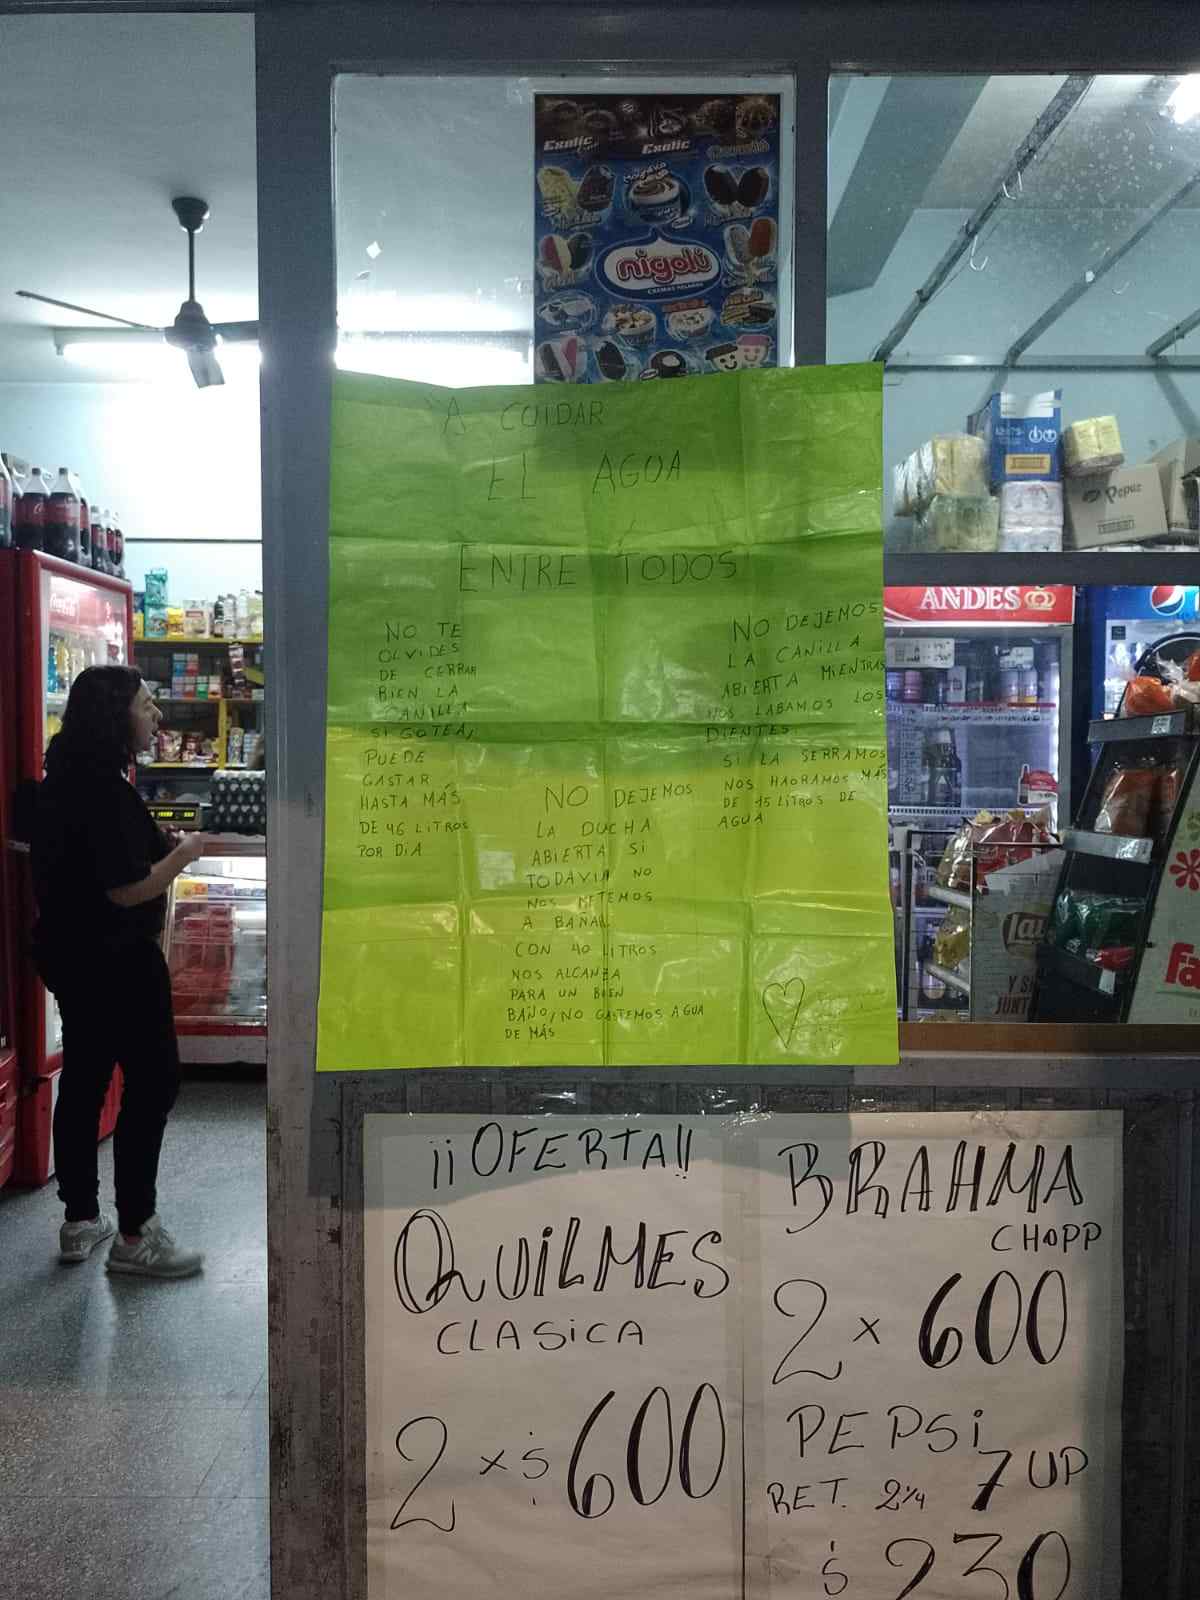 Exotic
Exotic
nigolí
CREMAS HELADAS
A CUIDAR
EL AGUA
ENTRE TODOS
NO TE
OLVIDES
DE CERRAR
BIEN LA
CANILLA
SI GOTEA,
PUEDE
GASTAR
HASTA MÁS
DE 46 LITROS
POR DIA
NO DEJEMOS
LA DUCHA
ABIERTA SI
TODAVIA NO
NOS METEMOS
A BAÑAR
CON 40 LITROS
NOS ALCANZA
PARA UN BUEN
BAÑO, NO GASTEMOS AGUA
DE MÁS
NO DEJEMOS
LA CANILLA
ABIERTA MIENTRAS
NOS LABAMOS LOS
DIENTES.
SI LA SERRAMOS
NOS HAORAMOS MÁS
DE 15 LITROS DE
AGUA
Pepuz
Coca-Cola
ANDES
¡¡OFERTA!!
QUILMES
CLASICA
2 x $600
BRAHMA
CHOPP
2 x 600
PEPSI
RET. 2 1/4 7UP
$ 230